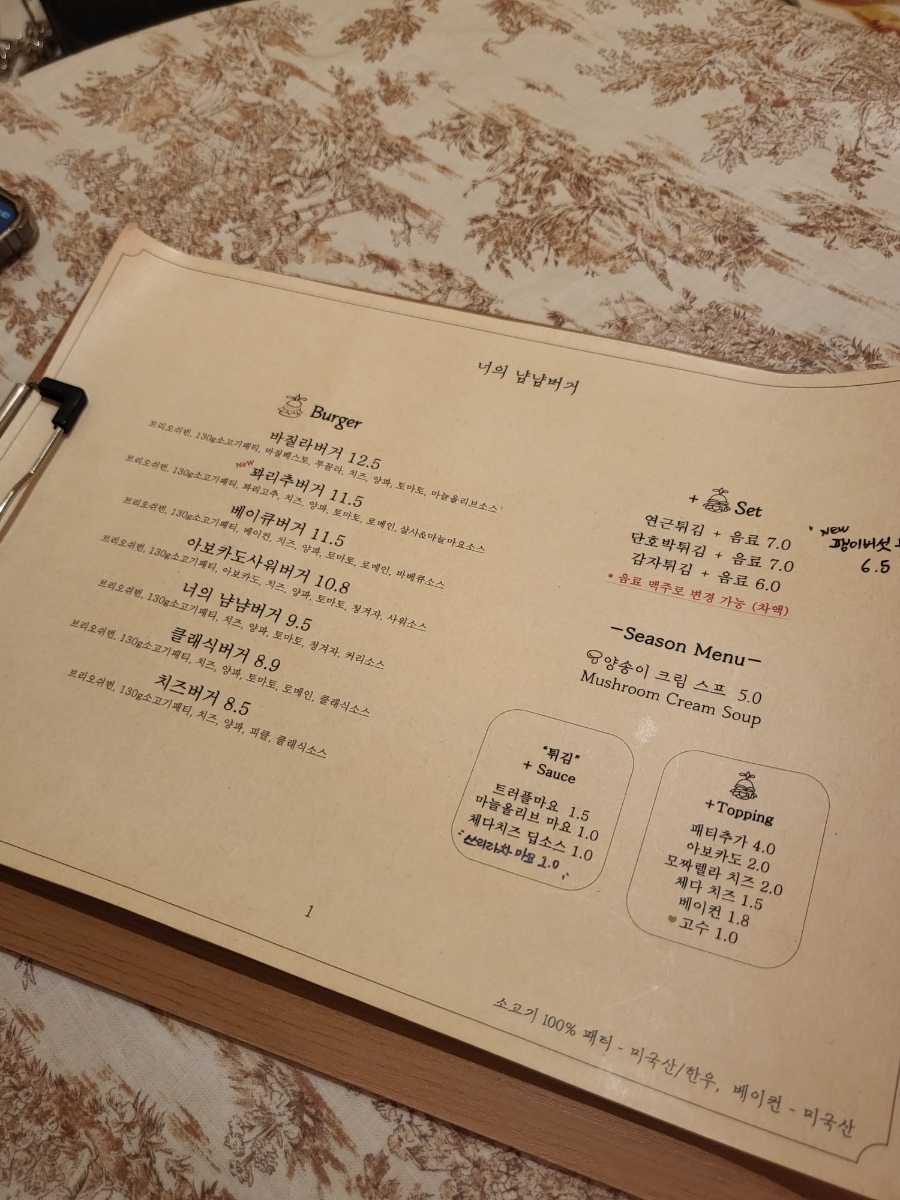 너의 냠냠버거
Burger
바질라버거 12.5
브리오쉬번, 130g소고기패티, 바질페스토, 루꼴라, 치즈, 양파, 토마토, 마늘올리브소스
New
꽈리추버거 11.5
브리오쉬번, 130g소고기패티, 꽈리고추, 치즈, 양파, 토마토, 로메인, 살사&마늘마요소스
베이큐버거 11.5
브리오쉬번, 130g소고기패티, 베이컨, 치즈, 양파, 토마토, 로메인, 바베큐소스
아보카도사워버거 10.8
브리오쉬번, 130g소고기패티, 아보카도, 치즈, 양파, 토마토, 청겨자, 사워소스
너의 냠냠버거 9.5
브리오쉬번, 130g소고기패티, 치즈, 양파, 토마토, 청겨자, 커리소스
클래식버거 8.9
브리오쉬번, 130g소고기패티, 치즈, 양파, 토마토, 로메인, 클래식소스
치즈버거 8.5
브리오쉬번, 130g소고기패티, 치즈, 양파, 피클, 클래식소스
+ Set
연근튀김 + 음료 7.0
단호박튀김 + 음료 7.0
감자튀김 + 음료 6.0
* 음료 맥주로 변경 가능 (차액)
New
팽이버섯
6.5
-Season Menu-
양송이 크림 스프 5.0
Mushroom Cream Soup
"튀김"
+ Sauce
트러플마요 1.5
마늘올리브 마요 1.0
체다치즈 딥소스 1.0
쓰리라차 마요 1.0
+Topping
패티추가 4.0
아보카도 2.0
모짜렐라 치즈 2.0
체다 치즈 1.5
베이컨 1.8
고수 1.0
1
소고기 100% 패티 - 미국산/한우, 베이컨 - 미국산